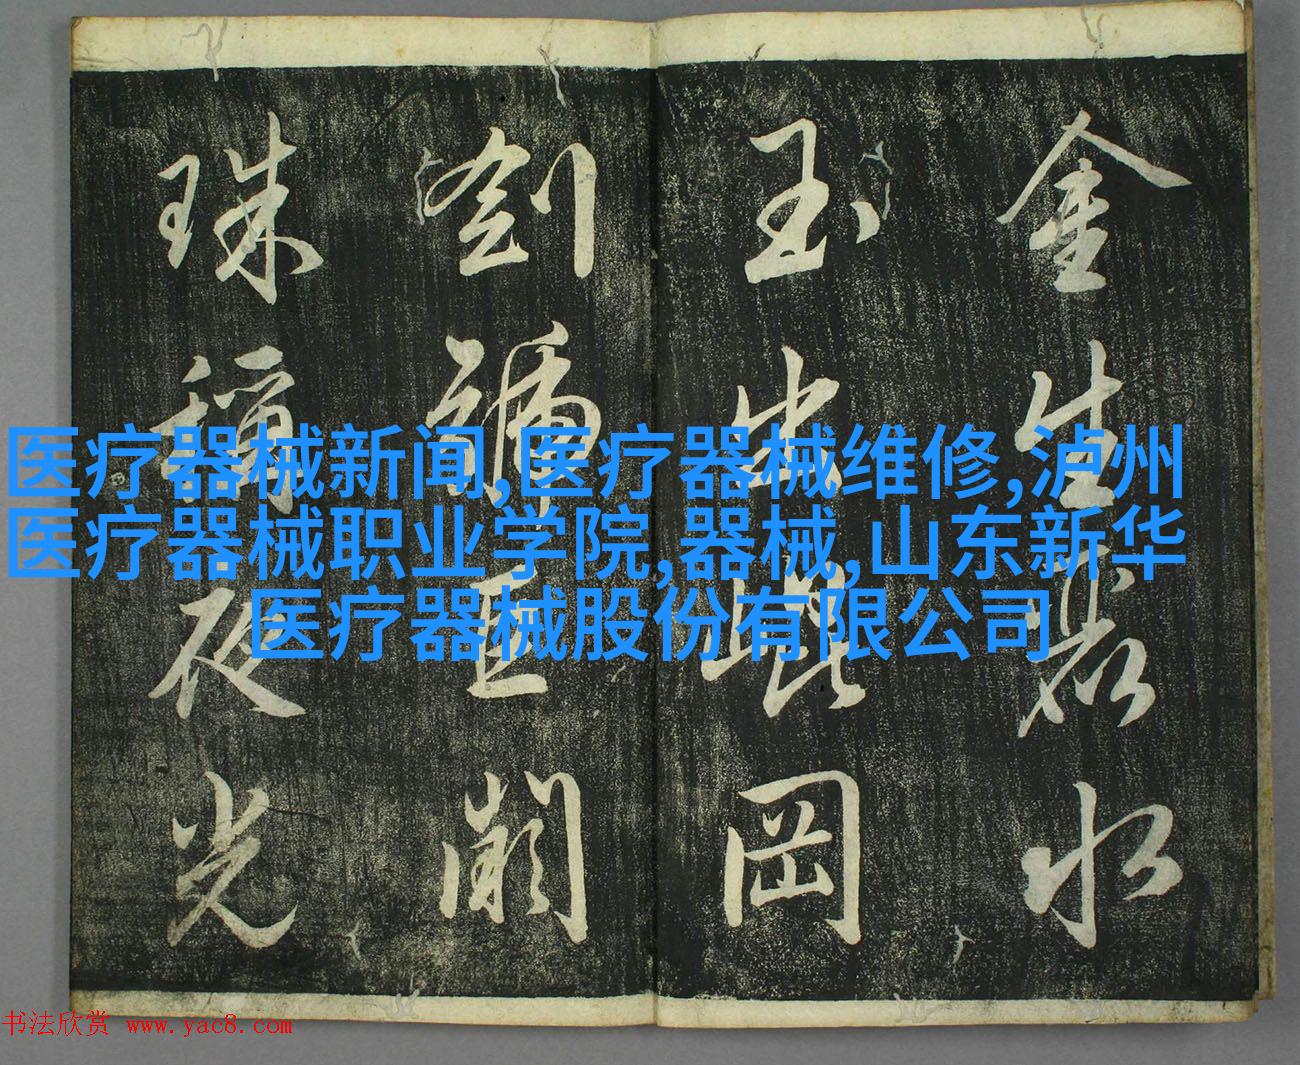 金生麗水
玉出崑岡
劍號巨闕
珠稱夜光
医疗器械新闻,医疗器械维修,泸州
医疗器械职业学院,器械,山东新华
医疗器械股份有限公司
书法欣赏 www.yac8.com